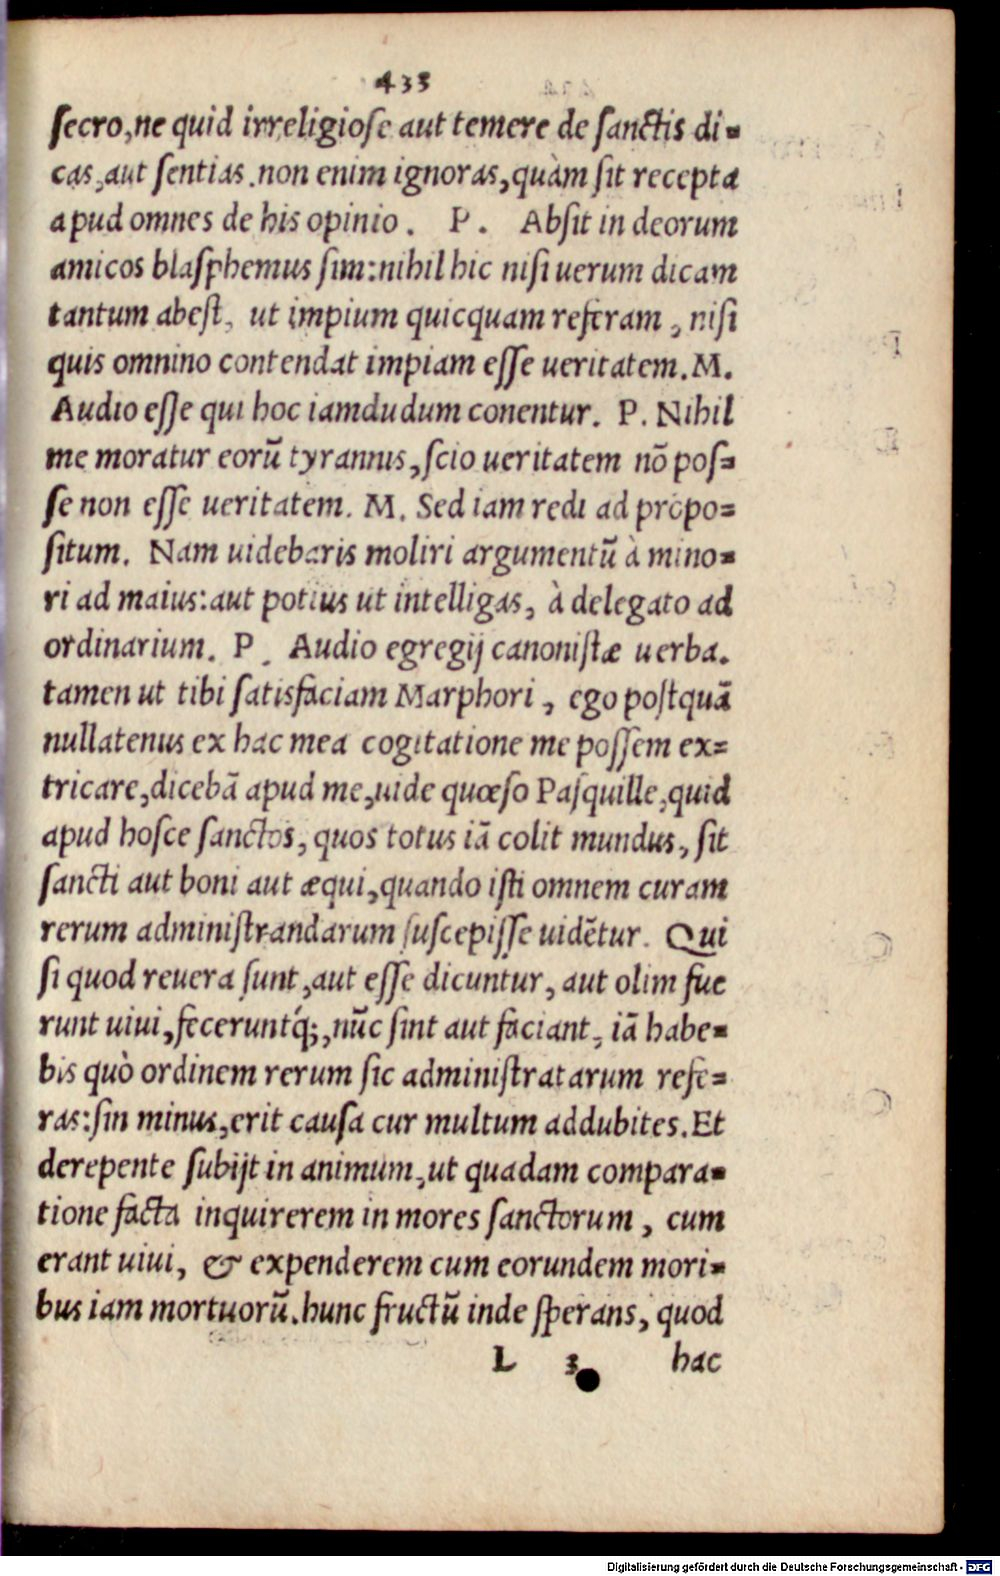 433
secro, ne quid irreligiose aut temere de sanctis di=
cas, aut sentias. non enim ignoras, quàm sit recepta
apud omnes de his opinio. P. Absit in deorum
amicos blasphemus sim: nihil hic nisi uerum dicam
tantum abest, ut impium quicquam referam, nisi
quis omnino contendat impiam esse ueritatem. M.
Audio esse qui hoc iamdudum conentur. P. Nihil
me moratur eorũ tyrannis, scio ueritatem nõ pos=
se non esse ueritatem. M. Sed iam redi ad propo=
situm. Nam uidebaris moliri argumentũ à mino=
ri ad maius: aut potius ut intelligas, à delegato ad
ordinarium. P. Audio egregij canonistæ uerba.
tamen ut tibi satisfaciam Marphori, ego postquã
nullatenus ex hac mea cogitatione me possem ex=
tricare, dicebã apud me, uide quæso Pasquille, quid
apud hosce sanctos, quos totus iã colit mundus, sit
sancti aut boni aut æqui, quando isti omnem curam
rerum administrandarum suscepisse uidẽtur. Qui
si quod reuera sunt, aut esse dicuntur, aut olim fue
runt uiui, feceruntq́;, nũc sint aut faciant, iã habe=
bis quò ordinem rerum sic administratarum refe=
ras: sin minus, erit causa cur multum addubites. Et
derepente subijt in animum, ut quadam compara=
tione facta inquirerem in mores sanctorum, cum
erant uiui, & expenderem cum eorundem mori=
bus iam mortuorũ. hunc fructũ inde sperans, quod
L 3 hac
Digitalisierung gefördert durch die Deutsche Forschungsgemeinschaft - DFG